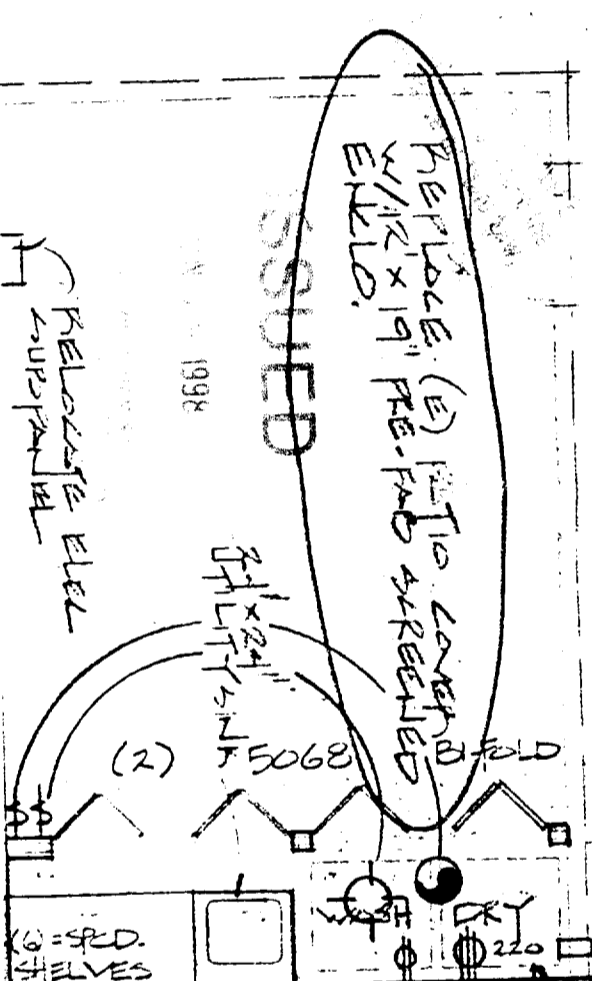 REPLACE (E) PATIO COVER
W/12' x 19' PRE-FAB SCREENED
ENCLO.
ISSUED
1998
RELOCATE ELEC
SUBPANEL
24" x 24"
UTILITY SINK
(2) 5068 BI-FOLD
WASH DRY
220
SPCD.
SHELVES